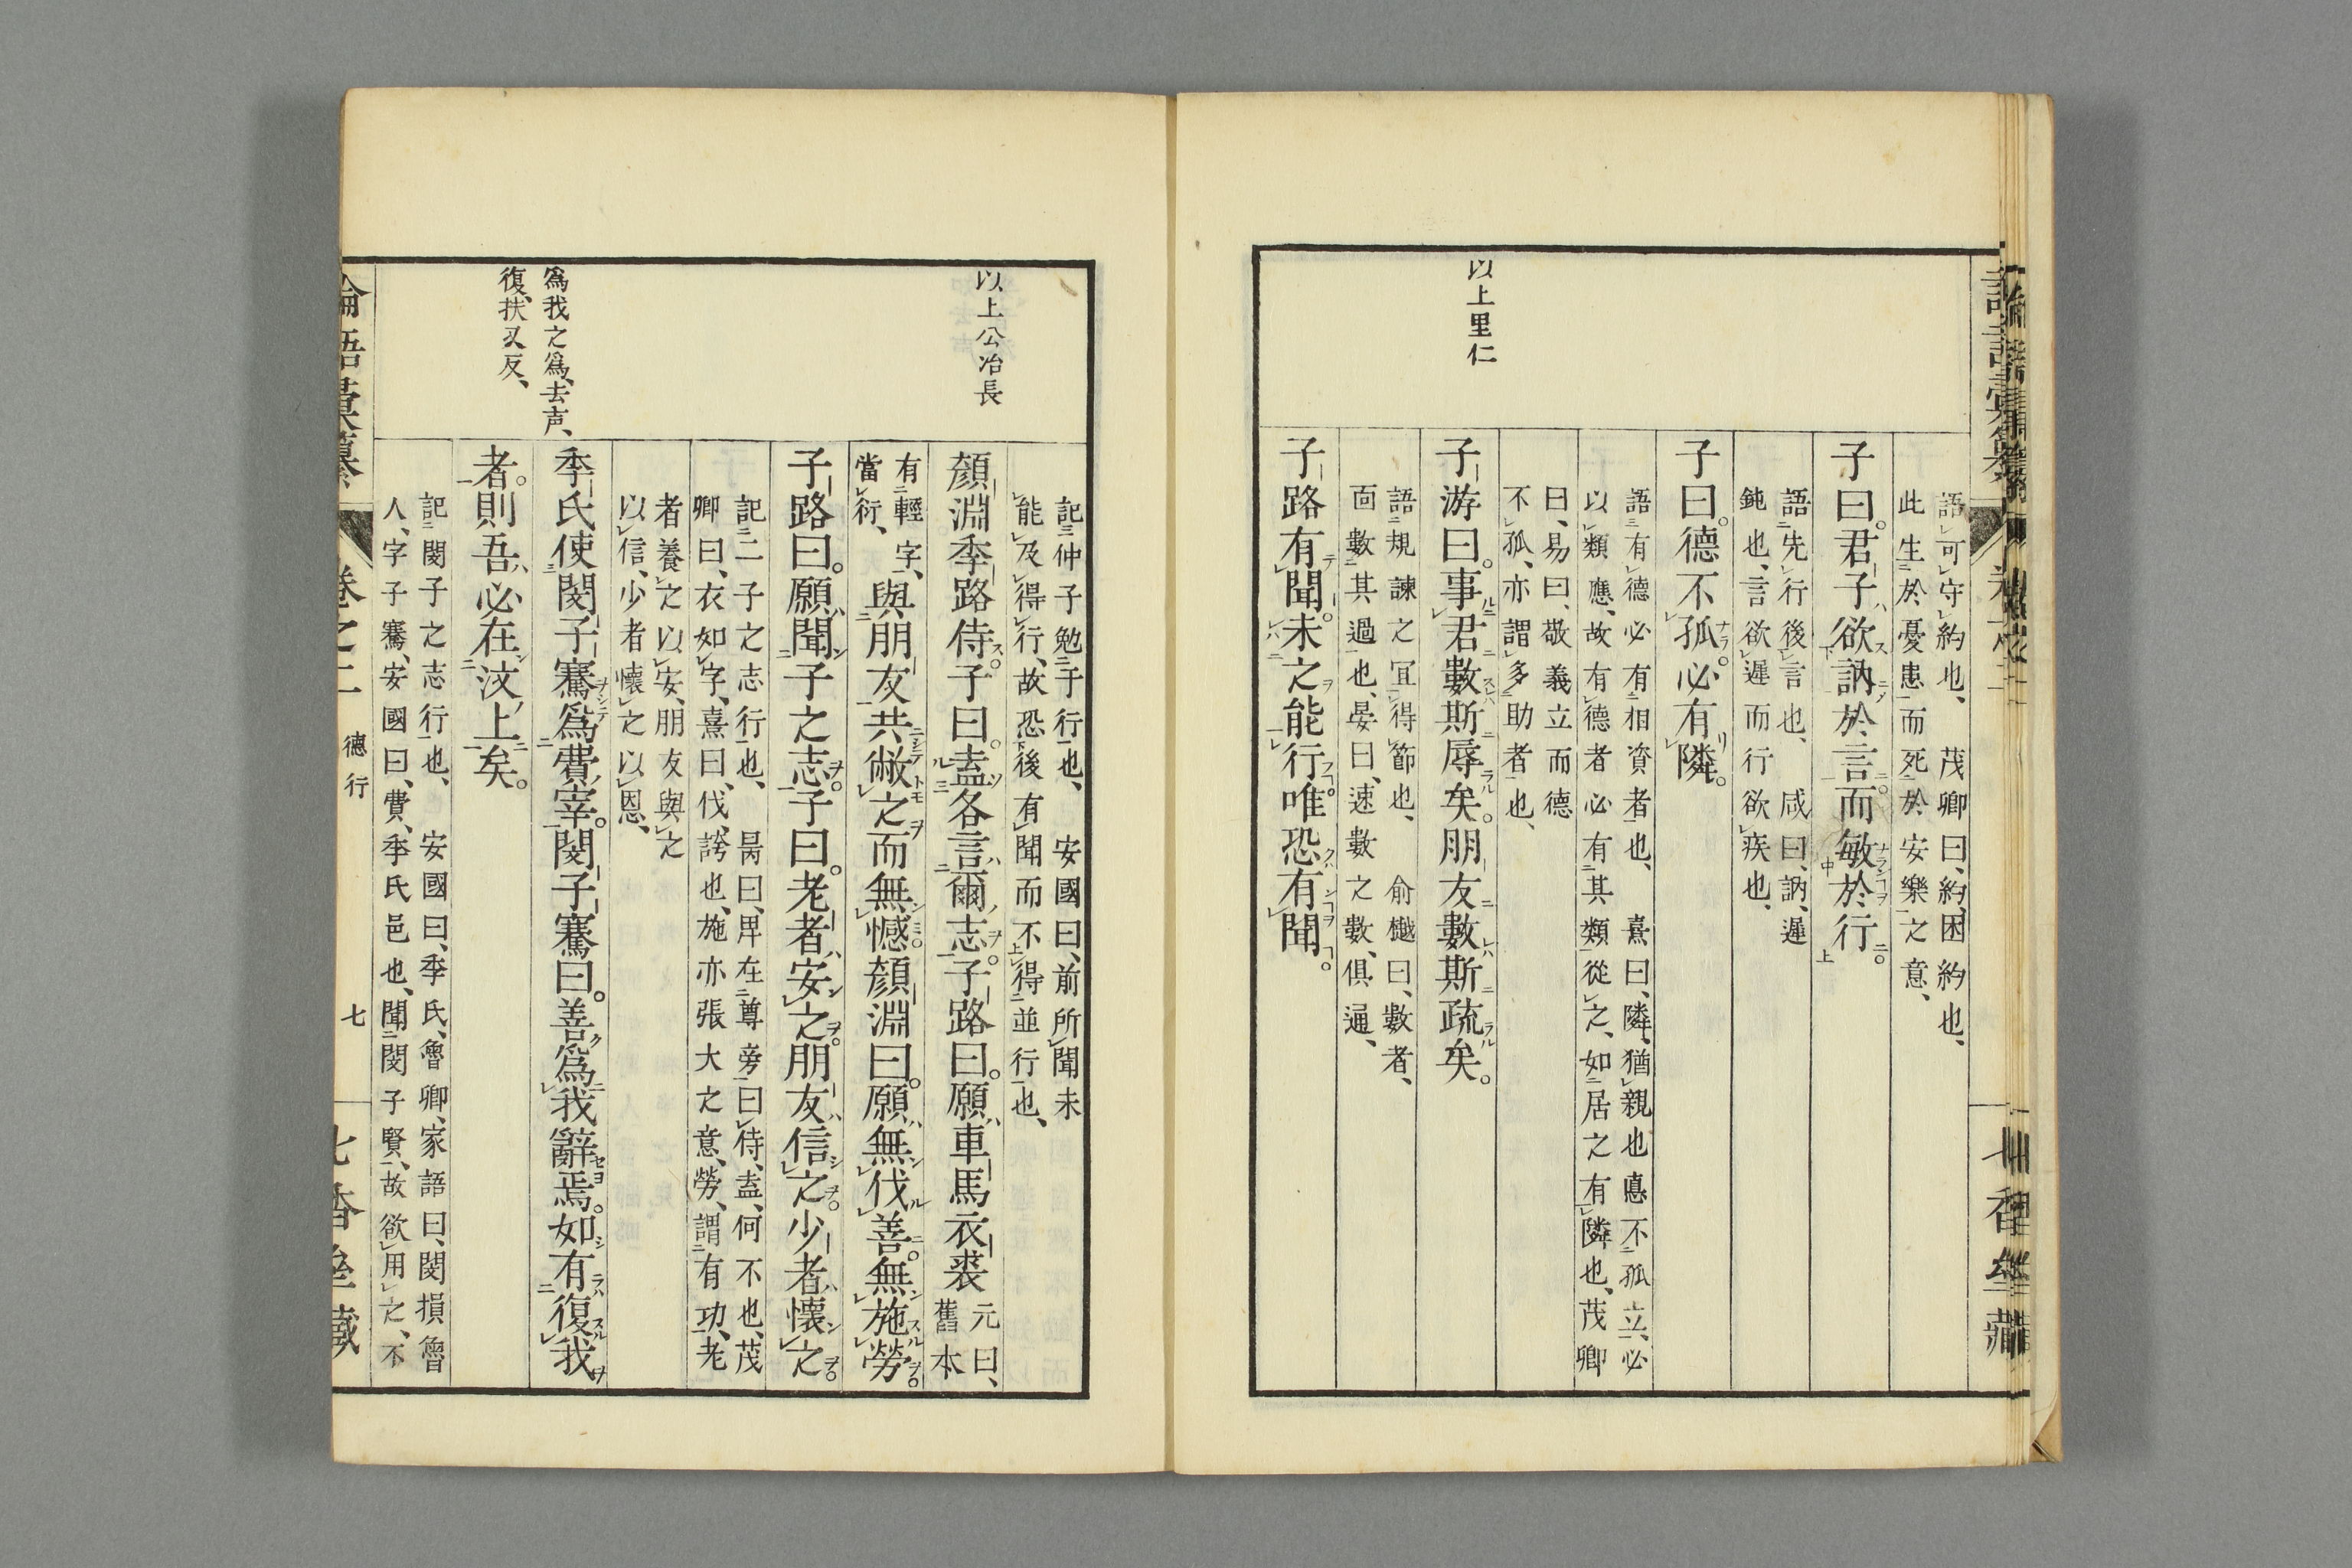 語可守約也、茂卿曰、約、困約也、
此生於憂患而死於安樂之意、
子曰。君子欲訥於言。而敏於行。
語先行後言也、咸曰、訥、遲
鈍也、言欲遲而行欲疾也、
子曰。德不孤。必有隣。
語有德必有相資者也、熹曰、隣、猶親也、德不孤立、必
以類應、故有德者必有其類從之、如居之有隣也、茂卿
曰、易曰、敬義立而德
不孤、亦謂多助者也、
以上里仁
子游曰。事君數斯辱矣。朋友數斯疏矣。
語規諫之宜得節也、俞樾曰、數者、
面數其過也、晏曰、速數之數、俱通、
子路有聞。未之能行。唯恐有聞。
記仲子勉于行也、安國曰、前所聞未
能及得行、故恐後有聞而不得並行也、
以上公冶長
顏淵季路侍。子曰。盍各言爾志。子路曰。願車馬衣裘
元曰、
舊本
有輕字、
當衍、
與朋友共敝之而無憾。顏淵曰。願無伐善。無施勞。
子路曰。願聞子之志。子曰。老者安之。朋友信之。少者懷之。
記二子之志行也、昺曰、卑在尊旁曰侍、盍、何不也、茂
卿曰、衣如字、熹曰、伐、誇也、施亦張大之意、勞、謂有功、老
者養之以安、朋友與之
以信、少者懷之以恩、
爲我之爲、去声、
復、扶又反、
季氏使閔子騫爲費宰。閔子騫曰。善爲我辭焉。如有復我
者。則吾必在汶上矣。
記閔子之志行也、安國曰、季氏、魯卿、家語曰、閔損魯
人、字子騫、安國曰、費、季氏邑也、聞閔子賢、故欲用之、不
論語彙纂
卷之二 德行
七
七香坐藏